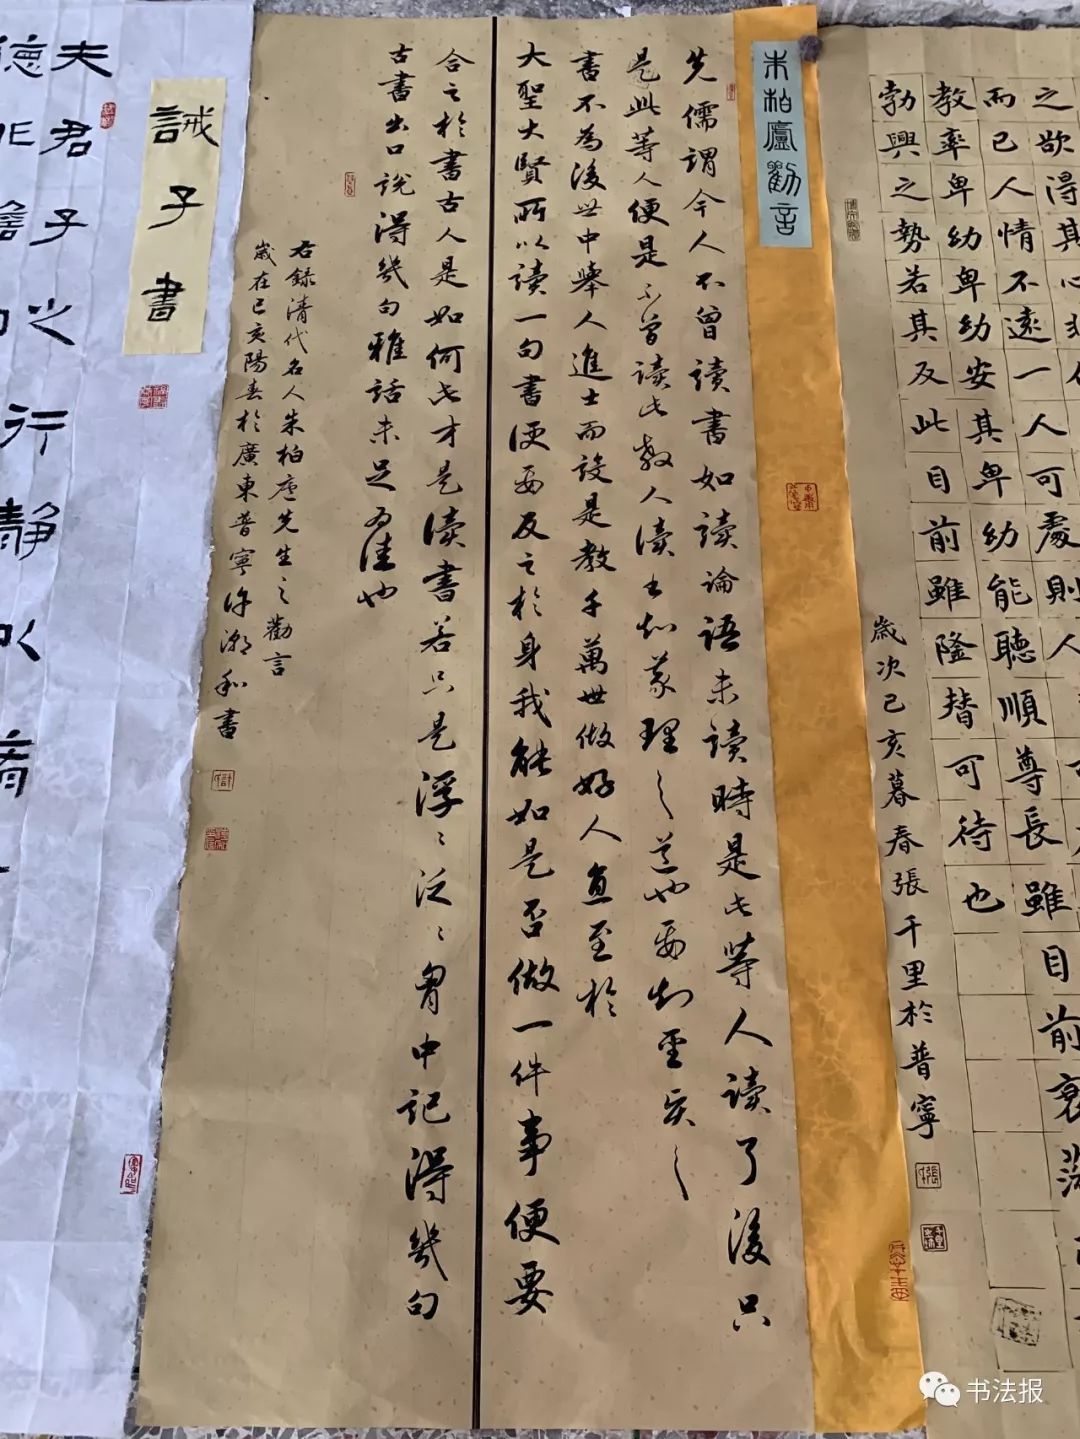 之欲得其心
而已人情不遠一人可處則人
教率卑幼卑幼安其卑幼能聽順尊長雖目前衰落
勃興之勢若其反此目前雖隆替可待也
歲次己亥暮春張千里於普寧
朱柏廬勸言
先儒謂今人不曾讀書如讀論語未讀時是此等人讀了後只
是此等人便是不曾讀此教人讀書知義理之道也要知聖賢之
書不為後世中舉人進士而設是教千萬世做好人直至於
大聖大賢所以讀一句書便要反之於身我能如是否做一件事便要
合之於書古人是如何此才是讀書若只是浮浮泛泛胸中記得幾句
古書出口說得幾句雅話未足為佳也
右錄清代名人朱柏廬先生之勸言
歲在己亥陽春於廣東普寧許潮和書
誡子書
夫君子之行靜以脩
書法报